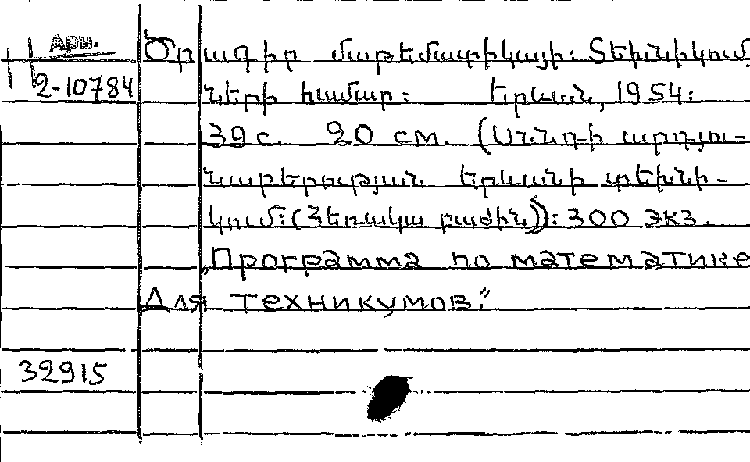 Арм. Ծրագիր մաթեմատիկայի: Տեխնիկում
2-10784 ների համար: Երևան, 1954:
39 с. 20 см. (Սննդի արդյու-
նաբերության Երևանի տեխնի-
կում: (Հեռակա բաժին)): 300 экз.
„Программа по математике
для техникумов."
32915